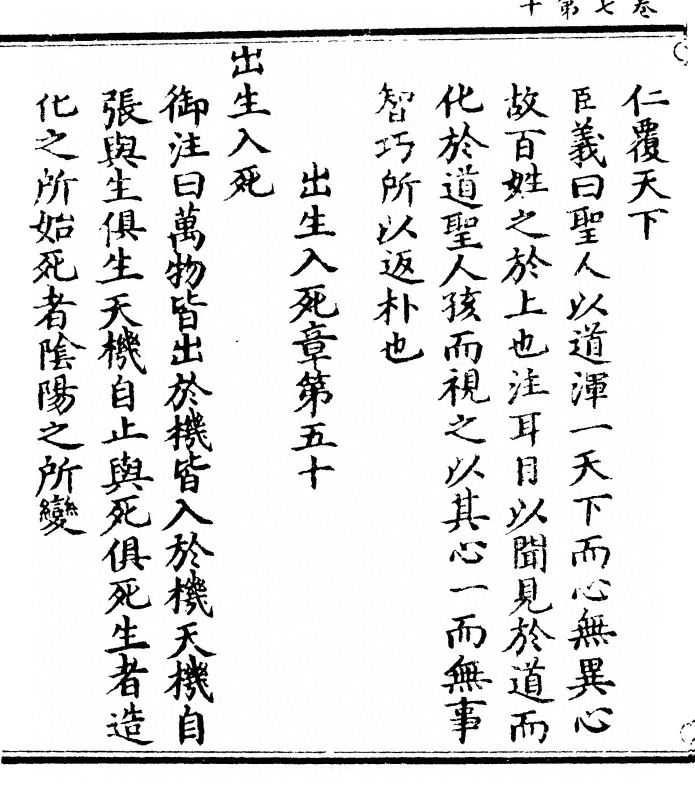 卷七第十
仁覆天下
臣義曰聖人以道渾一天下而心無異心
故百姓之於上也注耳目以聞見於道而
化於道聖人孩而視之以其心一而無事
智巧所以返朴也
出生入死章第五十
出生入死
御注曰萬物皆出於機皆入於機天機自
張與生俱生天機自止與死俱死生者造
化之所始死者陰陽之所變